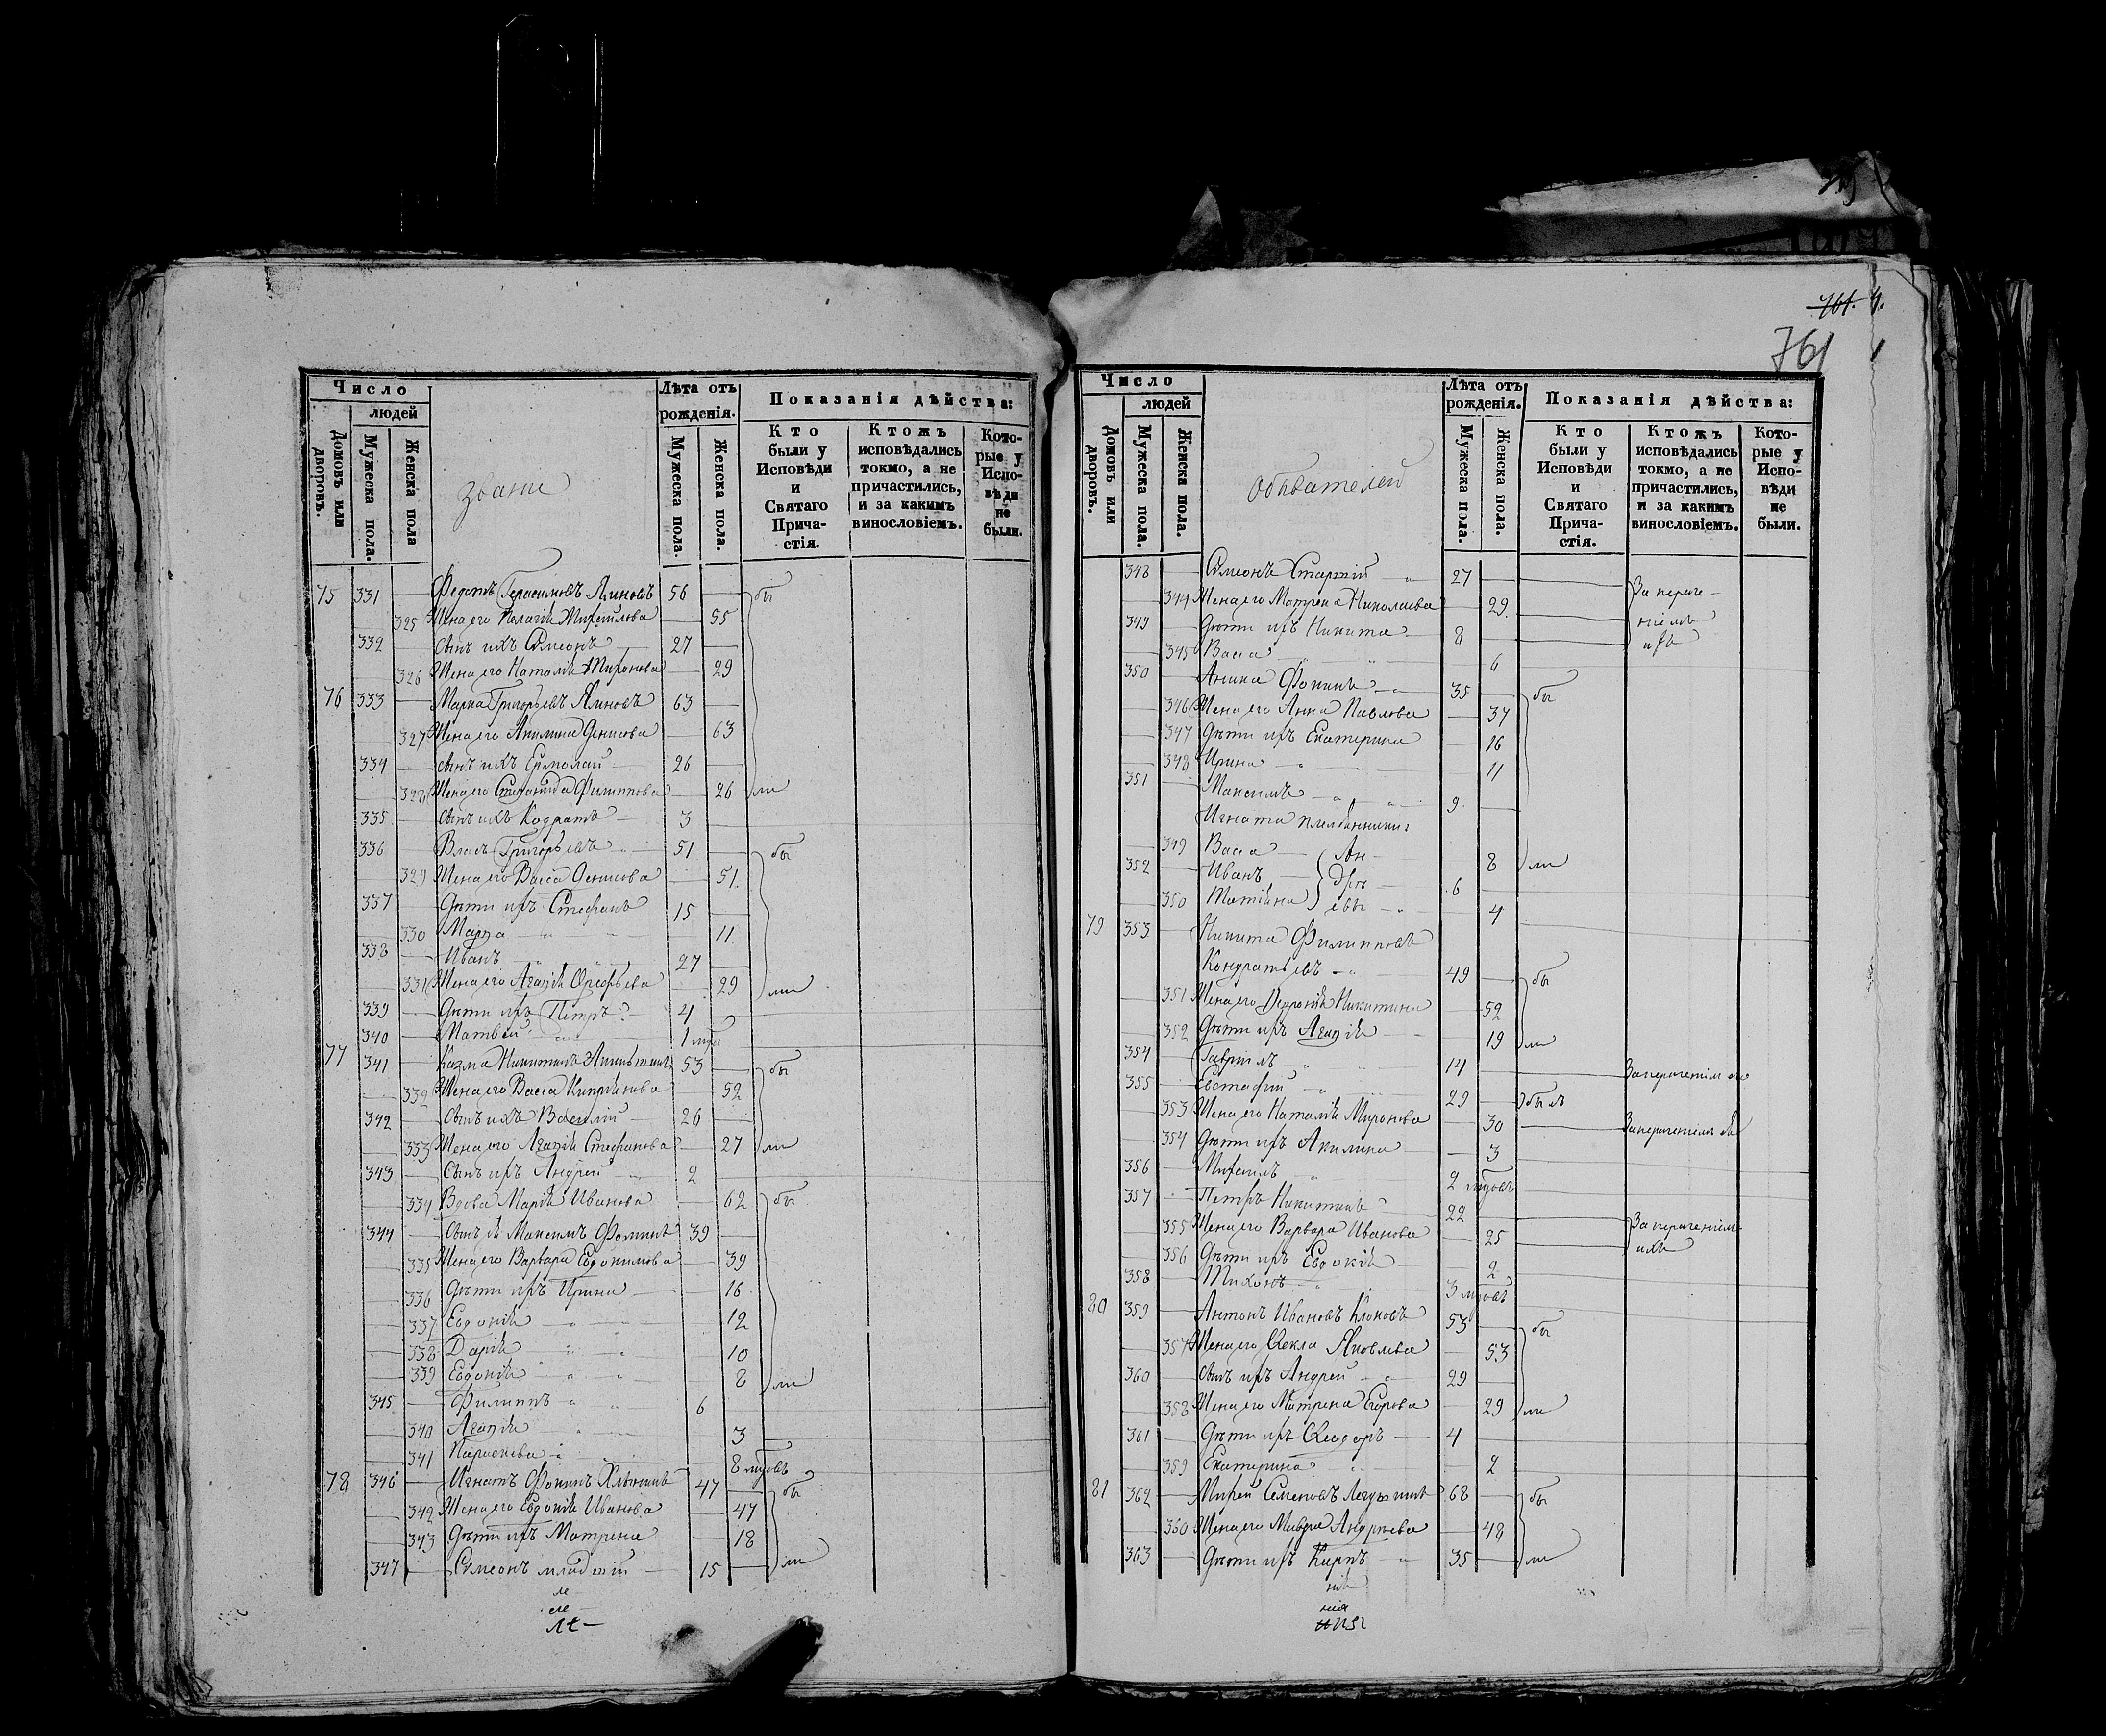 761. 4.
761
Число
людей
Домовъ или дворовъ.
Мужеска пола.
Женска пола
Званіе
Лѣта отъ рожденія.
Мужеска пола.
Женска пола.
Показанія дѣйства:
Кто были у Исповѣди и Святаго Прича-стія.
Ктожъ исповѣдались токмо, а не причастились, и за какимъ винословіемъ.
Кото-рые у Испо-вѣди не были.
75 331 Федотъ Герасимовъ 56 бы
325 Жена его Пелагія Михайлова 55
332 Сынъ ихъ Симеонъ 27
326 Жена его Наталія 29
76 333 Марка Григорьевъ 63
327 Жена его Акилина Денисова 63
334 Сынъ ихъ Ермолай 26
328 Жена его Степанида Филиппова 26 ли
335 Сынъ ихъ Кодратъ 3
336 Власъ Григорьевъ 51 бы
329 Жена его Васса Денисова 51
337 Дѣти ихъ Стефанъ 15
330 Марѳа 11
338 Иванъ 27
331 Жена его Агапія 29 ли
339 Дѣти ихъ Петръ 4
340 Матвей 1
77 341 Казма Никитинъ 53 бы
332 Жена его Васса 52
342 Сынъ ихъ Василій 26
333 Жена его Агапія Стефанова 27 ли
343 Сынъ ихъ Андрей 2
334 Вдова Марія Иванова 62 бы
344 Сынъ ея Максимъ Фоминъ 39
335 Жена его Варвара Евдокимова 39
336 Дѣти ихъ Ирина 16
337 Евдокія 12
338 Дарія 10
339 Евдокія 8 ли
345 Филиппъ 6
340 Агапія 3
341 Параскева 8
78 346 Игнатъ Фоминъ 47 бы
342 Жена его Евдокія Иванова 47
343 Дѣти ихъ Матрена 18
347 Симеонъ младшій 15 ли
Число
людей
Домовъ или дворовъ.
Мужеска пола.
Женска пола.
Обывателей
Лѣта отъ рожденія.
Мужеска пола.
Женска пола.
Показанія дѣйства:
Кто были у Исповѣди и Святаго Прича-стія.
Ктожъ исповѣдались токмо, а не причастились, и за какимъ винословіемъ.
Кото-рые у Испо-вѣди не были.
348 Симеонъ Старшій 27
344 Жена его Матрена Николаева 29
349 Дѣти ихъ Никита 8
345 Васса 6
350 Аника Фоминъ 35 бы
346 Жена его Анна Павлова 37
347 Дѣти ихъ Екатерина 16
348 Ирина 11
351 Максимъ 9
Игната племянники
349 Васса 8 ли
352 Иванъ 6
350 4
79 353 Никита Филипповъ
Кондратьевъ 49 бы
351 Жена его Никитина 52
352 Дѣти ихъ Агапія 19 ли
354 Гавріилъ 14
355 Евстафій 29 былъ
353 Жена его Наталія Миронова 30
354 Дѣти ихъ Акилина 3
356 Михаилъ 2
357 Петръ Никитинъ 22
355 Жена его Варвара Иванова 25
356 Дѣти ихъ Евдокія 2
358 Тихонъ 3
80 359 Антонъ Ивановъ 53 бы
357 Жена его Ѳекла Яковлева 53
360 Сынъ ихъ Андрей 29
358 Жена его Матрена Егорова 29 ли
361 Дѣти ихъ Ѳеодоръ 4
359 Екатерина 2
81 362 Михей Семеновъ 68 бы
360 Жена его Мавра Андреева 48
363 Дѣти ихъ Карпъ 35 ли